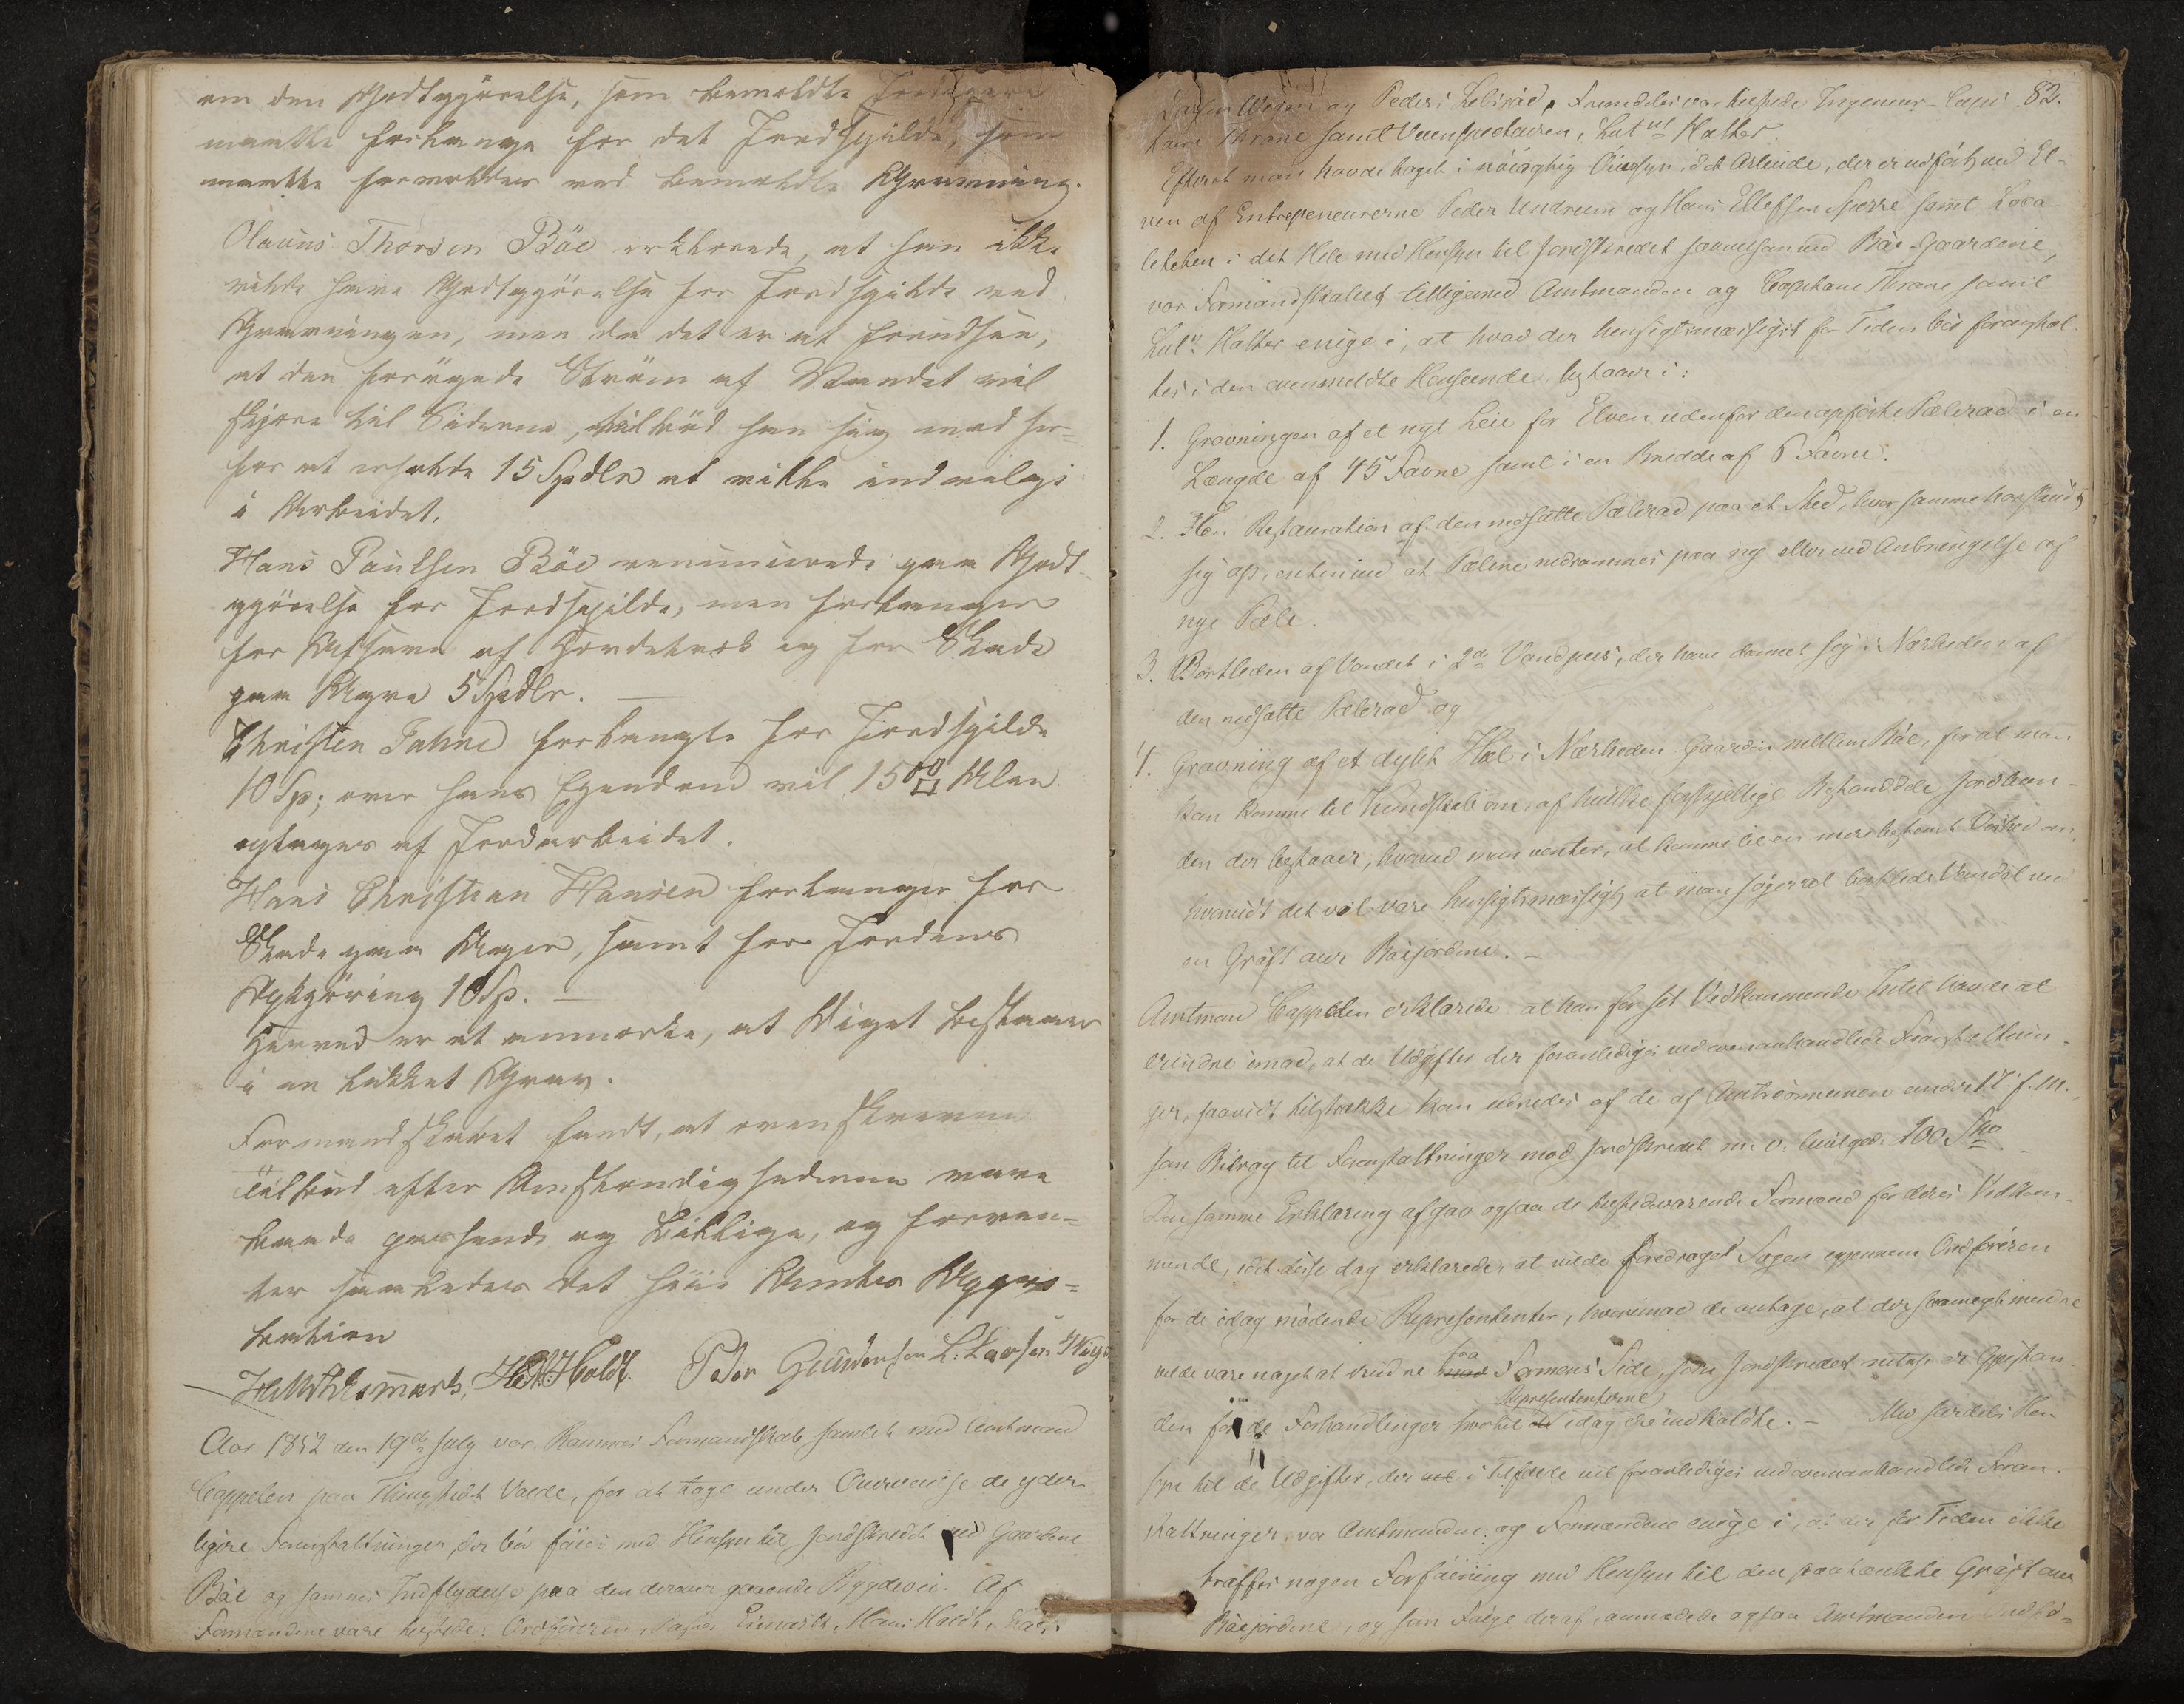 om den Godtgjörelse, som bemeldte Jordeiere
maatte forlange for det Jordspilde, som
maatte forvoldes ved bemeldte Gravning.
Olaves Thorsen Böe erklærede, at han ikke
vilde have Godtgjörelse for Jordspilde ved
Gravningen, men da det er at forudsee,
at den forögede Ström af Vandet vil
skjære til Siderne, tilböd han sig mod her-
for at erholde 15 Spdlr at ville indvilge
i Arbeidet.
Hans Paulsen Böe renuncierede paa Godt-
gjörelse for Jordspilde, men forlanger
for Afsavn af Gjordebrok og for Skade
paa Ageren 5 Spdlr.
Christen Tahne forlangte for Jordspilde
10 Sp; over hans Eiendom vil 1500 □ Alen
optages af Jordarbeidet.
Hans Christian Hansen forlanger for
Skade paa Ager, samt for Jordens
Opkjöring 10 Sp. —
Herved er at anmærke, at Diget bestaaer
i en lukket Grav.
Formandskabet fandt, at ovenskrevne
Tilbud efter Omstændighederne vare
baade passende og billige, og forven-
ter saaledes det höie Amtes Appro-
bation
H. Holdt. Peder Gundersen L. Larsen Wegn
Aar 1852 den 19de July var Ramnes Formandskab samlet med Amtmand
Cappelen paa Thingstedet Valde, for at tage under Overveielse de yder-
ligere Foranstaltninger, der bör föies med Hensyn til Jordskredet ved Gaardene
Böe og sammes Indflydelse paa den derover gaaende Bygdevei. Af
Formændene vare tilstede: Ordföreren, Eismark, Hans Holdt, Lars
Larsen Wegn og Peder Lebsröd. Fremdeles var tilstede Ingenieur-Capi- 82.
taine Thrane samt Veiinspecteuren, Leutnt Hatker.
Efterat man havde taget i nöiagtig Öiesyn det Arbeide, der er udfört ved El-
ven af Entrepeneurerne Peder Undrum og Hans Ellefsen Sperre samt Loca-
liteten i det Hele med Hensyn til Jordskredet saavelsom ved Böe-Gaardene,
var Formandskabet tilligemed Amtmanden og Capitaine Thrane samt
Leutn. Hatker enige i, at hvad der hensigtsmæssigst for Tiden bör foranstal-
tes i den ovenmeldte Henseende, bestaaer i:
1. Gravningen af et nyt Leie for Elven udenfor den opförte Pælerad i en
Længde af 45 Favne samt i en Bredde af 6 Favne.
2. En Restauration af den nedsatte Pælerad paa et Sted, hvor samme har skudt
sig op, enten ved at Pælene nedrammes paa ny eller ved Anbringelse af
nye Pæle.
3. Bortleden af Vandet i 2de Vandpens, der have dannet sig i Nærheden af
den nedsatte Pælerad og
4. Gravning af et dybt Hol i Nærheden Gaarden mellem Böe, for at man
kan komme til Kundskab om, af hvilke forskjellige Bestanddele Jordbun-
den der bestaaer, hvorved man venter, at komme til en mere bestemt Vished om,
hvorvidt det vil være hensigtsmæssigt, at man söger at bortlede Vandet ved
en Gröft over Böejordene. —
Amtmand Cappelen erklærede at han for sit Vedkommende Intet havde at
erindre imod, at de Udgifter der foranlediges ved ovenanhandlede Foranstaltnin-
ger, saavidt tilstrække kan udredes af de af Amtsformuen under 17. f. M.
som Bidrag til Foranstaltninger mod Jordskredet m. v. bevilgede 100 Spd. —
Den samme Erklæring afgav ogsaa de tilstedeværende Formænd for deres Vedkom-
mende, idet disse dog erklærede, at ville foredraget Sagen igjennem Ordföreren
for de idag mödende Repræsentanter, hvorimod de antage, at der saameget mindre
vilde være noget at erindre fra Sammes Side, som Jordskredet netop er Gjenstan-
den for de Forhandlinger hvortil Repræsentanterne idag ere indkaldte. — Med særdeles Hen-
syn til de Udgifter, der i Tilfælde vil foranlediges ved ovenanhandlede Foran-
staltninger, var Amtmanden og Formændene enige i, at der for Tiden ikke
træffes nogen Forföining med Hensyn til den paatænkte Gröft over
Böejordene, og som Fölge deraf anmodede ogsaa Amtmanden